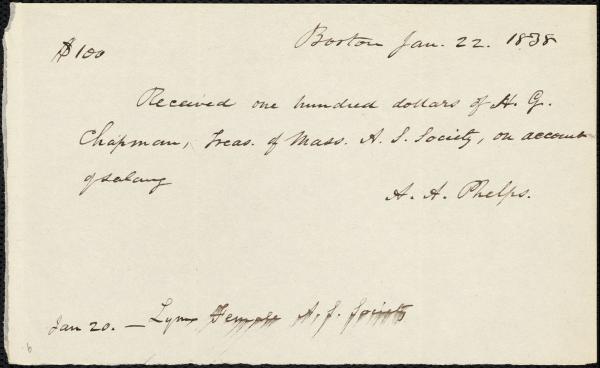 $100
Boston Jan. 22. 1838
Received one hundred dollars of H. G.
Chapman, Treas. of Mass. A. S. Society, on account
of salary
A. A. Phelps.
Jan 20. — Lynn Female A. S. Society
6